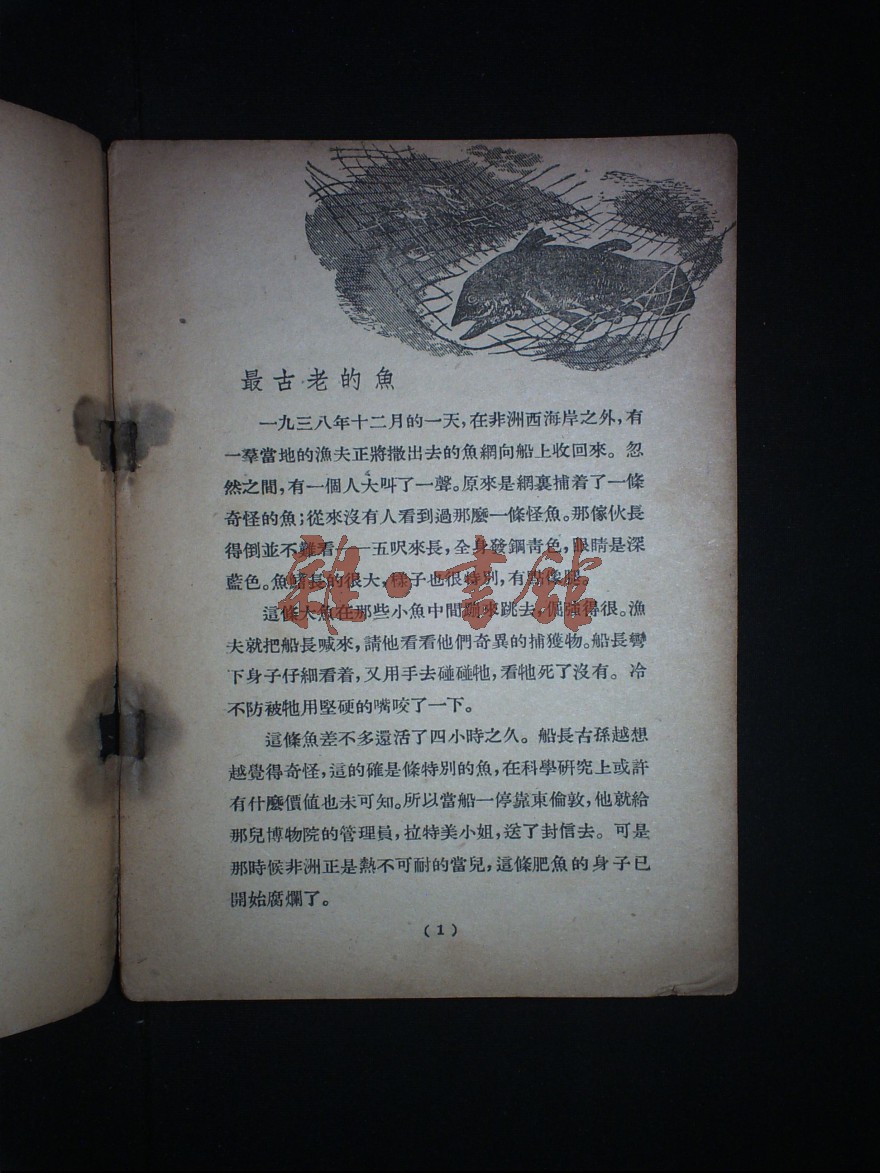 最古老的魚
一九三八年十二月的一天，在非洲西海岸之外，有
一羣當地的漁夫正將撒出去的魚網向船上收回來。忽
然之間，有一個人大叫了一聲。原來是網裏捕着了一條
奇怪的魚；從來沒有人看到過那麼一條怪魚。那傢伙長
得倒並不難看——五呎來長，全身發鋼靑色，眼睛是深
藍色。魚鰭長的很大，樣子也很特別，有點像腿。
這條大魚在那些小魚中間蹦來跳去，倔強得很。漁
夫就把船長喊來，請他看看他們奇異的捕獲物。船長彎
下身子仔細看着，又用手去碰碰牠，看牠死了沒有。冷
不防被牠用堅硬的嘴咬了一下。
這條魚差不多還活了四小時之久。船長古孫越想
越覺得奇怪，這的確是條特別的魚，在科學研究上或許
有什麼價值也未可知。所以當船一停靠東倫敦，他就給
那兒博物院的管理員，拉特美小姐，送了封信去。可是
那時候非洲正是熱不可耐的當兒，這條肥魚的身子已
開始腐爛了。
(1)
雜·書館